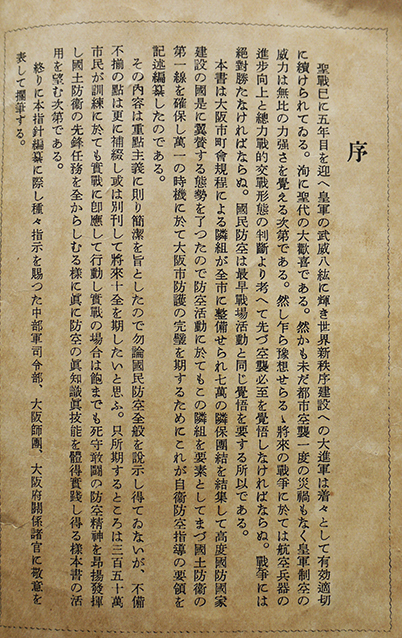 序
聖戰已に五年目を迎へ皇軍の武威八紘に輝き世界新秩序建設への大進軍は着々として有効適切
に續けられてゐる。洵に聖代の大歡喜である。然かも未だ都市空襲一度の災禍もなく皇軍制空の
威力は無比の力强さを覺える次第である。然し乍ら豫想せらるゝ將來の戰爭に於ては航空兵器の
進步向上と總力戰的交戰形態の判斷より考へて先づ空襲必至を覺悟しなければならぬ。戰爭には
絕對勝たなければならぬ。國民防空は最早戰場活動と同じ覺悟を要する所以である。
本書は大阪市町會規程による隣組が全市に整備せられ七萬の隣保團結を結集して高度國防國家
建設の國是に翼賛する態勢を了つたので防空活動に於てもこの隣組を要素としてまづ國土防衞の
第一線を確保し萬一の時機に於て大阪市防護の完璧を期するためにこれが自衞防空指導の要領を
記述編纂したのである。
その内容は重點主義に則り簡潔を旨としたので勿論國民防空全般を說示し得てゐないが、不備
不揃の點は更に補綴し或は別刊して將來十全を期したいと思ふ。只所期するところは三百五十萬
市民が訓練に於ても實戰に卽應して行動し實戰の場合は飽までも死守敢鬪の防空精神を昻揚發揮
し國土防衞の先鋒任務を全からしむる樣に眞に防空の眞知識眞技能を體得實踐し得る樣本書の活
用を望む次第である。
終りに本指針編纂に際し種々指示を賜つた中部軍司令部、大阪師團、大阪府關係諸官に敬意を
表して擱筆する。